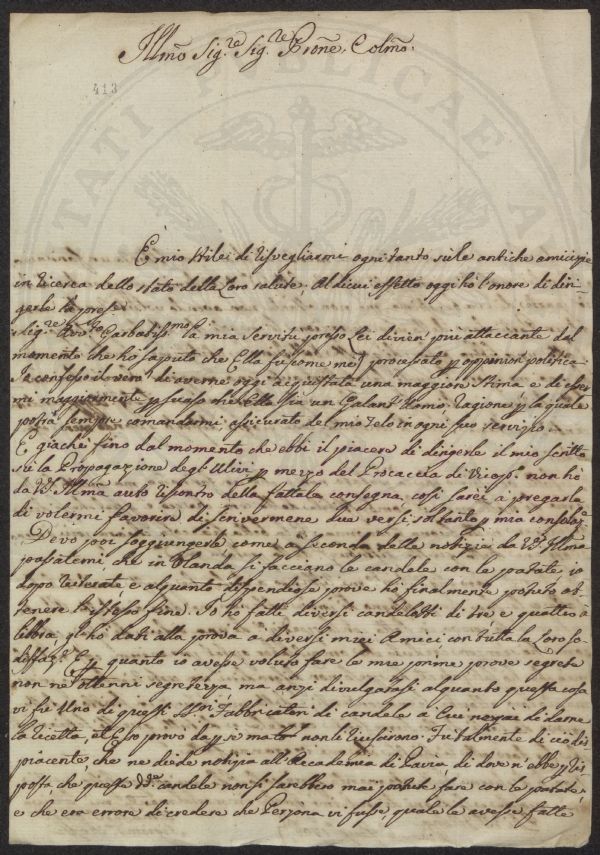 Illmõ Sig.re Sig.re Prõne Colmõ
413
È mio stile di risvegliarmi ogni tanto su le antiche amicizie
in ricerca dello stato della loro salute, Al di cui effetto oggi hò l'onore di diri-
gerle la prese
Sig.re Garbatiss.mo la mia servitù presso Lei divien più attaccante dal
momento che ho saputo che Ella fu come me processato p oppinion politica
Le confesso il vero di averne oggi acquistata una maggiore stima e di esser
mi maggiormente p suaso che Ella sia un Galant Uomo, ragione p la quale
potrà sempre comandarmi assicurato del mio zelo in ogni suo servizio
E giachè fino dal momento che ebbi il piacere di dirigerle il mio scritto
su la Propagazione degl'Ulivi p mezzo del Procaccia di non hò
da VS. Illma auto riscontro della fattale consegna, così sarei a pregarla
di volermi favorire di scrivermene due versi soltanto p mia consolaz.e
Devo poi soggiungerle come a seconda delle notizie da VS. Illma
passatemi, che in Olanda si facciano le candele con le patate io
dopo reiterate, e alquanto dispendiose prove hò finalmente potuto ot-
tenere l'istesso fine. Io hò fatte diversi candelotti di tre e quattro a
libbra, gl'hò dati alla prova a diversi miei Amici con tutta la loro so-
disfaz.e E p quanto io avesse voluto fare le mie prime prove segrete
non ne ottenni segretezza, ma anzi divulgatasi alquanto questa cosa
vi fu uno di questi SS.ri Fabbricatori di candele a cui negai di darne
la ricetta, et Esso provò da p se ma non li riuscirono. Fu talmente di ciò dis
piacente, che ne diede notizia all'Accademia di Pavia, di dove n'ebbe p ris
posta, che queste dde candele non si sarebbero mai potute fare con le patate,
e che era errore di credere che Persona vi fusse quale le avesse fatte